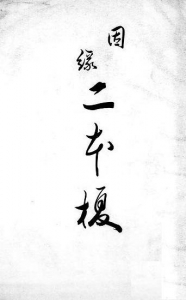 因縁
二本榎